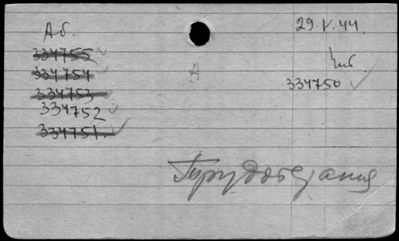 Аб.
29.V.44.
334755
334754
334753
334752
334751.
Чиб
334750
А